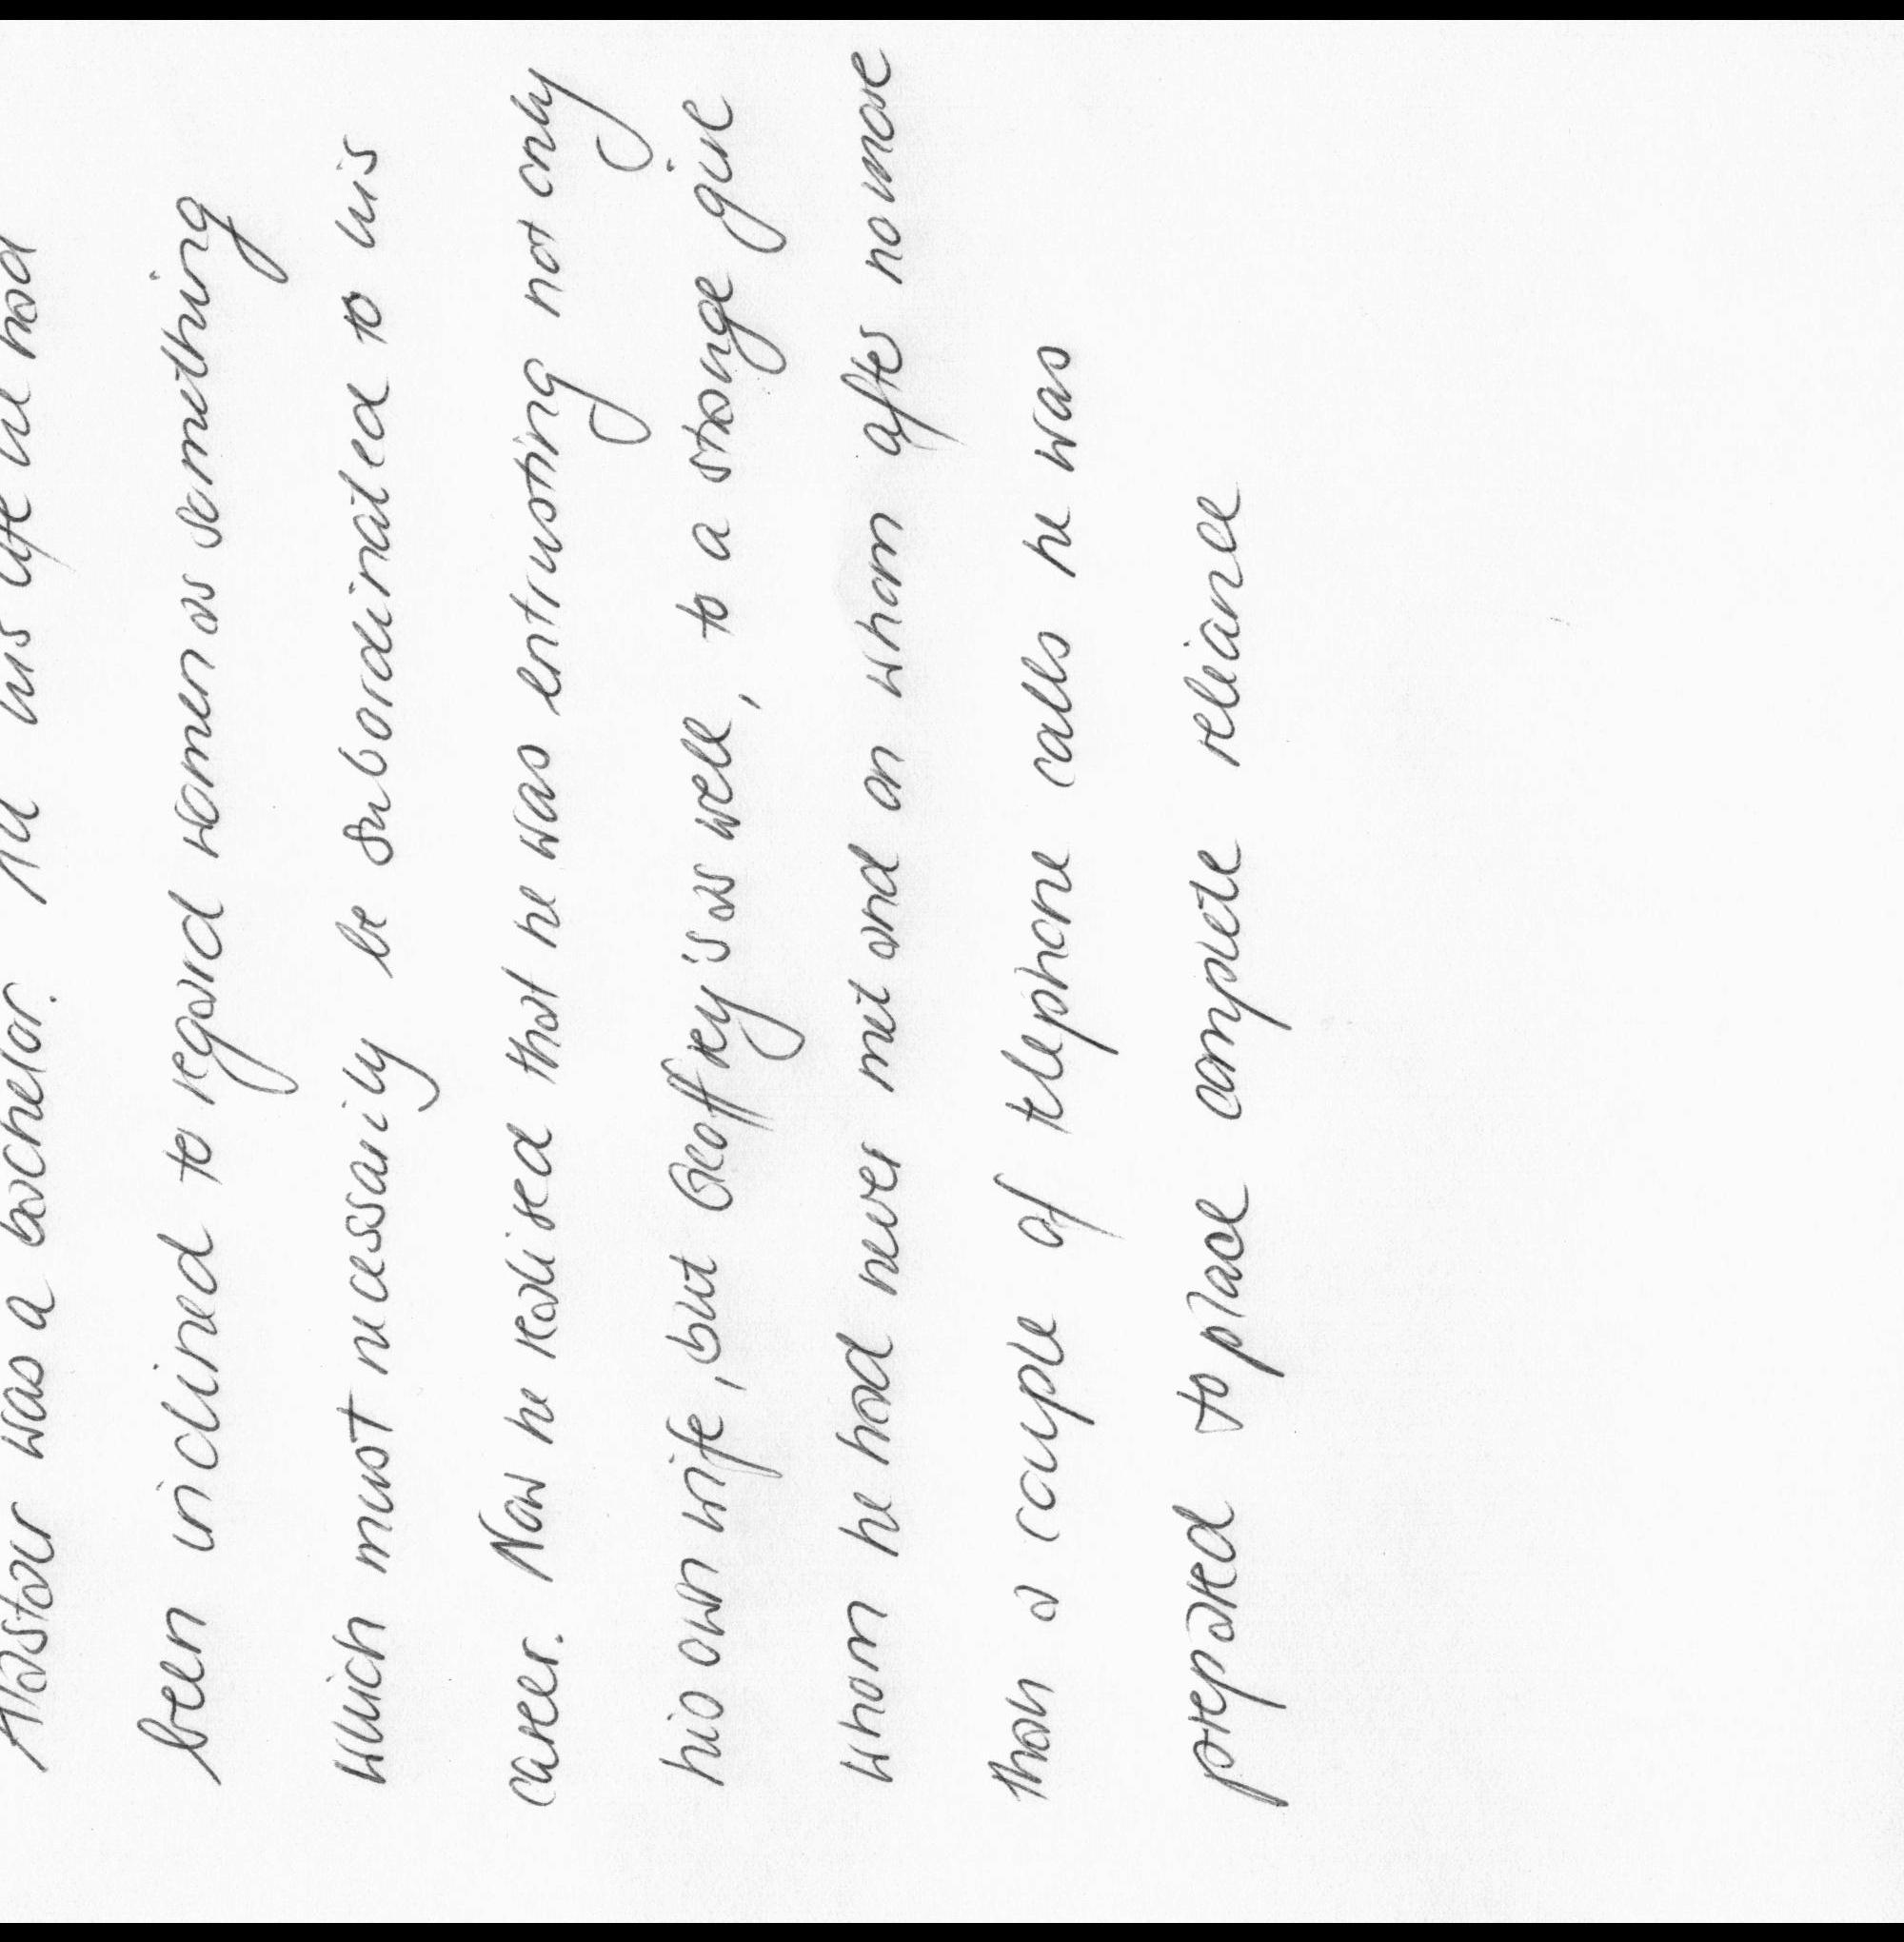 Alastair was a bachelor. All his life he had
been inclined to regard women as something
which must necessarily be subordinated to his
career. Now he realised that he was entrusting not only
his own wife, but Geoffrey's as well, to a strange girl
whom he had never met and on whom after no more
than a couple of telephone calls he was
prepared to place complete reliance